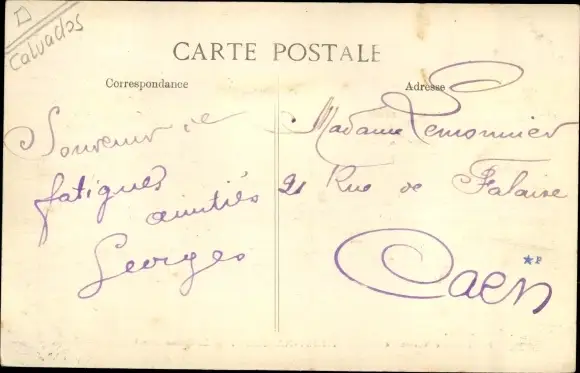 D
Calvados
CARTE POSTALE
Correspondance
Adresse
Souvenir de
fatigues
amitiés
Georges
Madame Lemonnier
21 Rue de Falaise
Caën